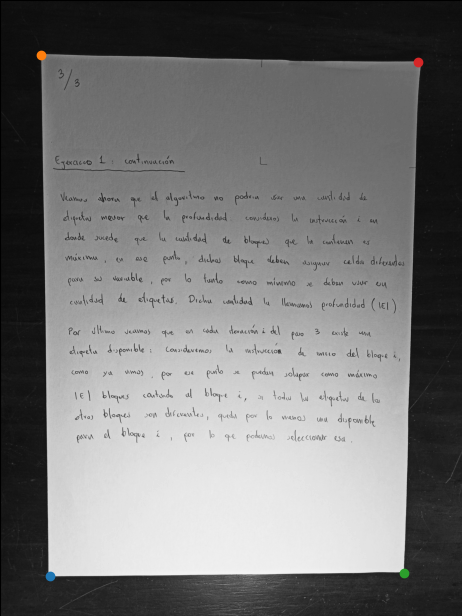 3/3
Ejercicio 1: continuación
Veamos ahora que el algoritmo no podría usar una cantidad de
etiquetas menor que la profundidad. consideros la instrucción i en
donde sucede que la cantidad de bloques que la contienen es
máxima, en ese punto, dichos bloque deben asignar celdas diferentes
para su variable, por lo tanto como mínimo se deben usar esa
cantidad de etiquetas. Dicha cantidad la llamamos profundidad (|E|)
Por último veamos que en cada iteración i del paso 3 existe una
etiqueta disponible: Consideremos la instrucción de inicio del bloque i,
como ya vimos, por ese punto se pueden solapar como máximo
|E| bloques contando al bloque i, si todas las etiquetas de los
otros bloques son diferentes, queda por lo menos una disponible
para el bloque i, por lo que podemos seleccionar esa.